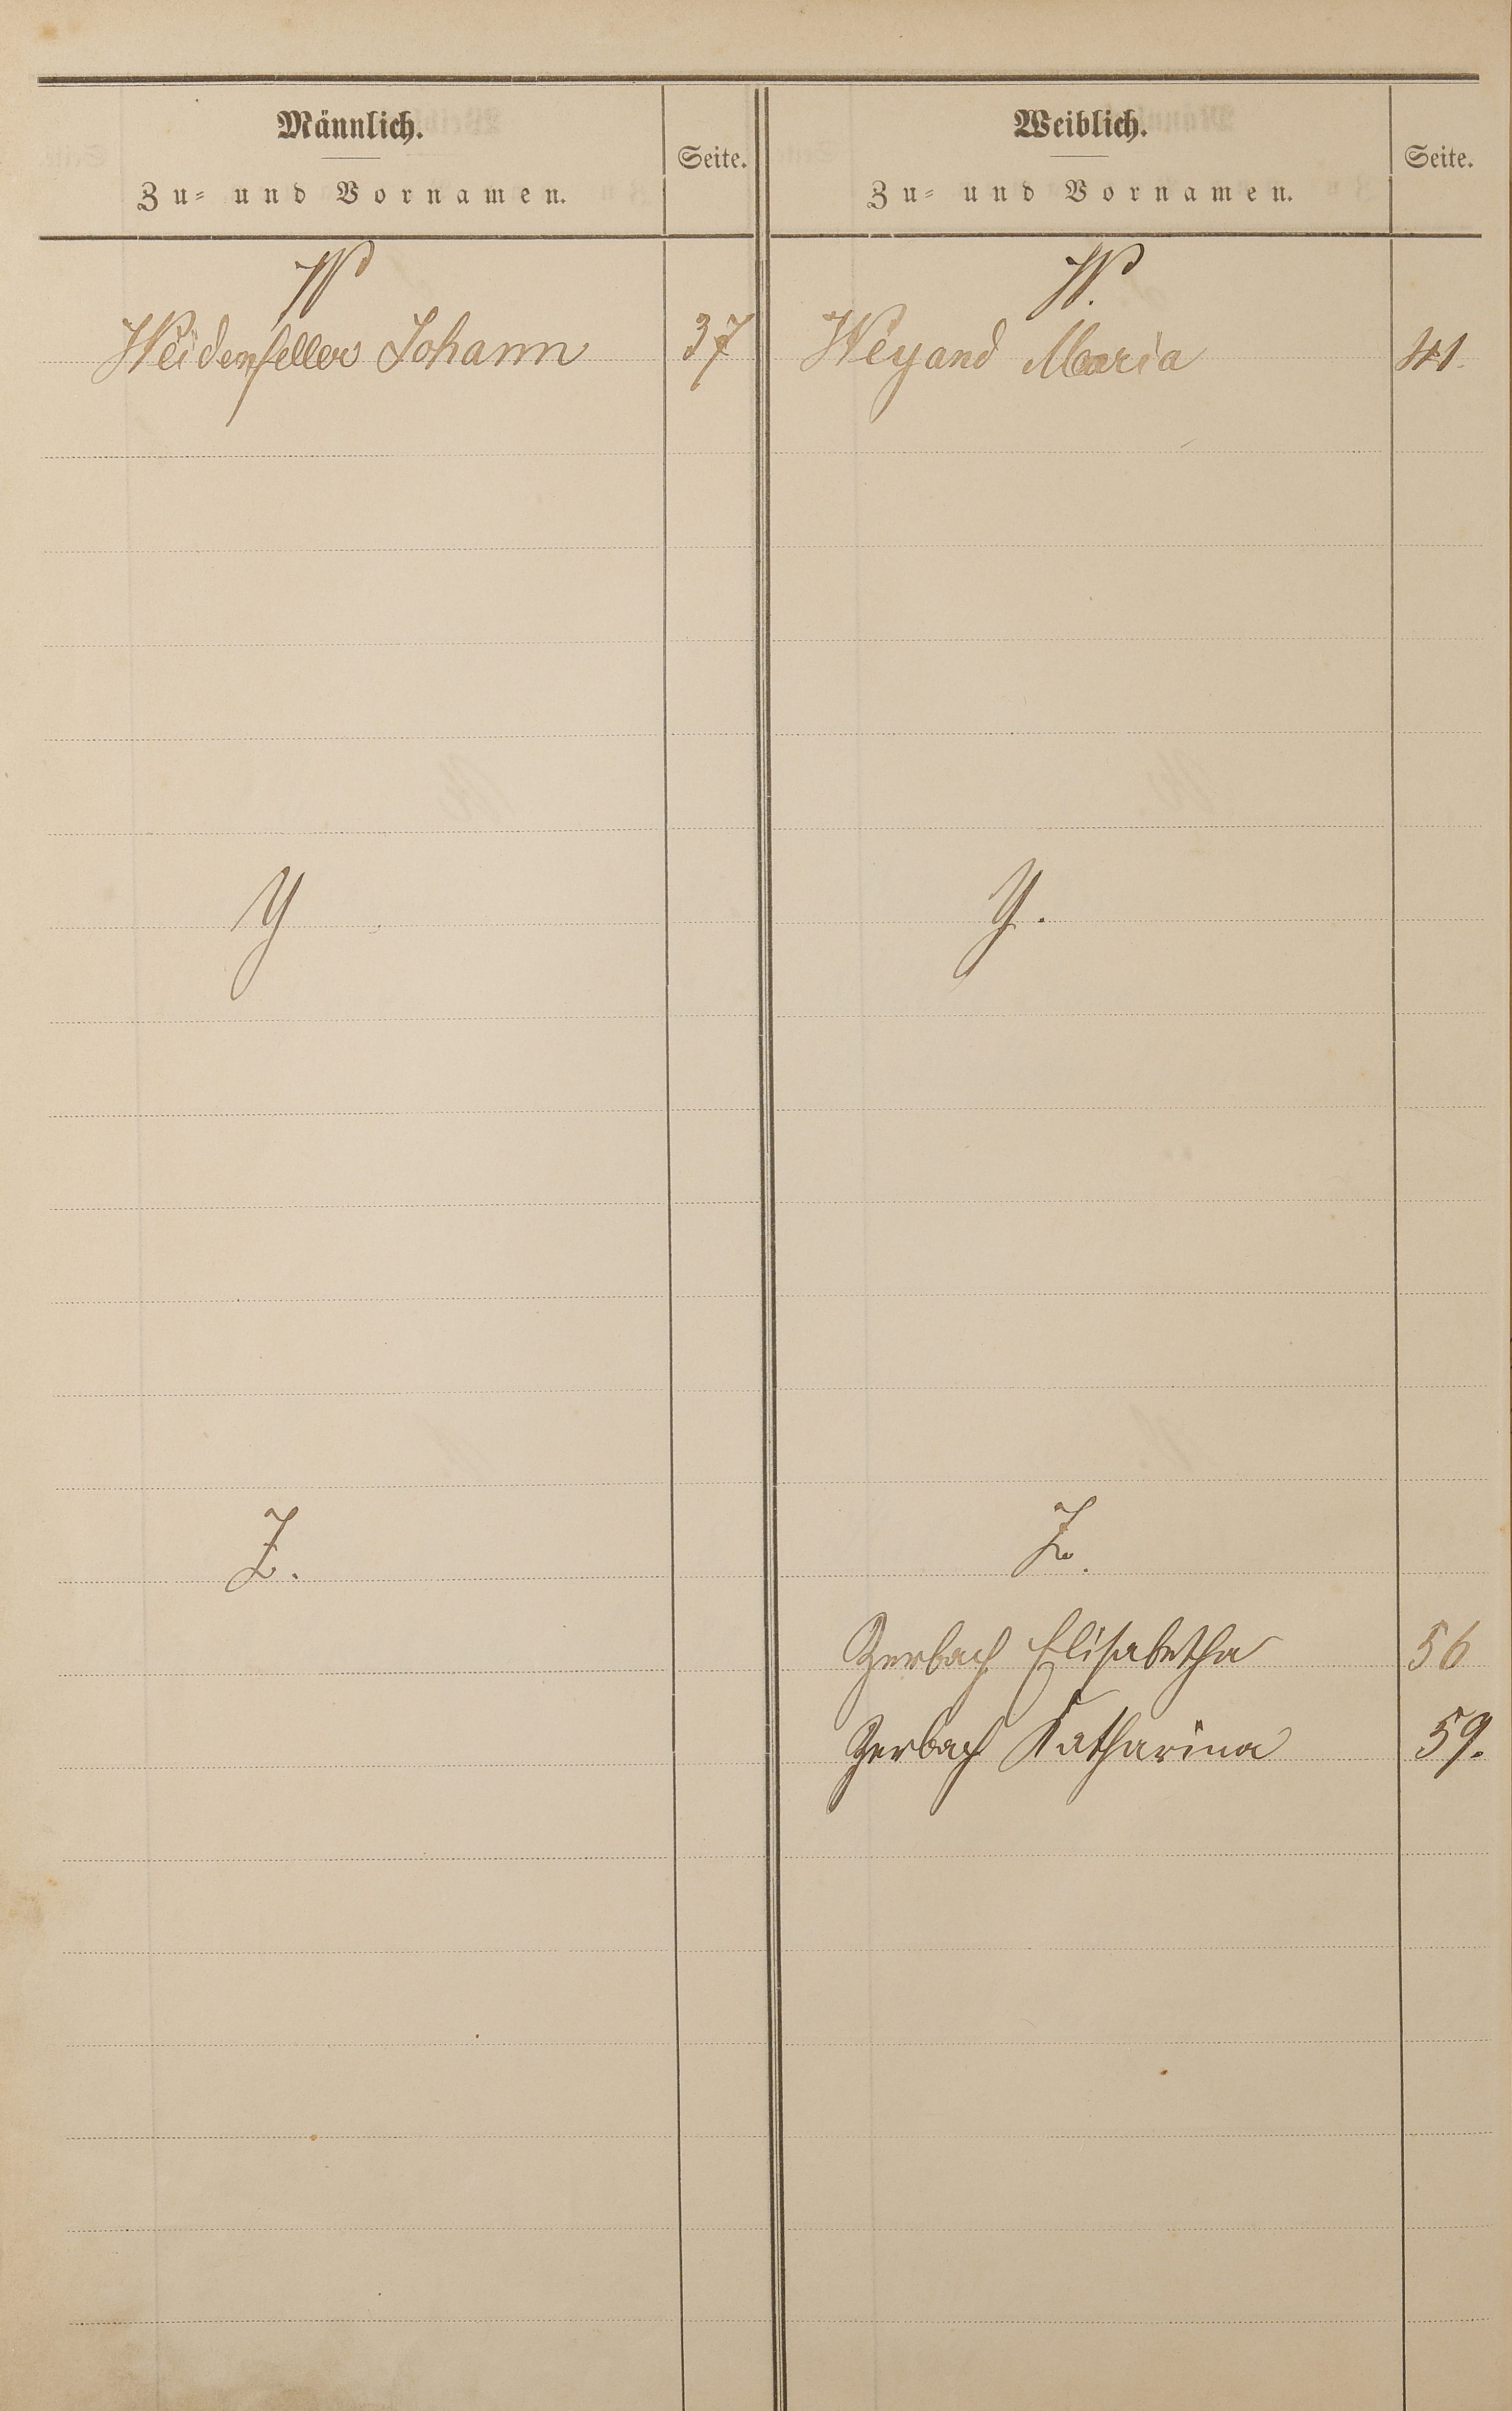 Männlich.
Zu- und Vornamen.
Seite.
W
Weidenfeller Johann 37
Y
Z.
Weiblich.
Zu- und Vornamen.
Seite.
W.
Weyand Maria 41.
Y.
Z.
Zerbach Elisabetha 56
Zerbach Katharina 59.